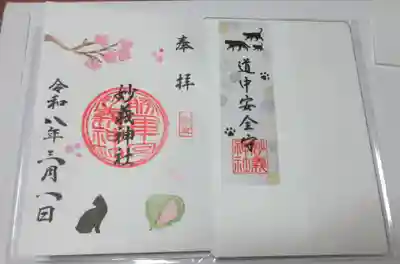 奉拝
妙義神社
令和八年三月一日
道中安全守